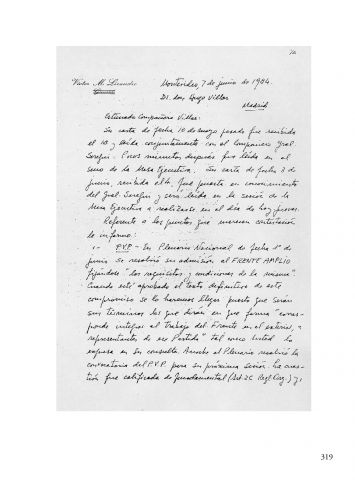 Víctor M. Licandro
Montevideo, 7 de junio de 1984.
Dr. don Hugo Villar
Madrid
Estimado Compañero Villar:
Su carta de fecha 10 de mayo pasado fue recibida
el 10 y leída conjuntamente con el compañero Gral.
Seregni. Pocos minutos después fue leída en el
seno de la Mesa Ejecutiva. Su carta de fecha 3 de
junio, recibida fue puesta en conocimiento
del Gral. Seregni y será leída en la sesión de la
Mesa Ejecutiva a realizarse en el día de hoy jueves.
Referente a los puntos que merecen contestación
le informo:
1.- P.V.P. - En Plenario Nacional de fecha 1º de
junio se resolvió su admisión al FRENTE AMPLIO
fijándose "los requisitos y condiciones de la misma".
Cuando esté aprobado el texto definitivo de este
compromiso se lo haremos llegar puesto que serán
sus términos los que dirán en que forma "corres-
ponde integrar al trabajo del Frente en el exterior, a
representantes de ese Partido" tal como Usted lo
expresa en su consulta. Anoche el Plenario resolvió la
convocatoria del P.V.P. para su próxima sesión. La cues-
tión fue calificada de fundamental (Art. 2C Regl. Org.) y,
319